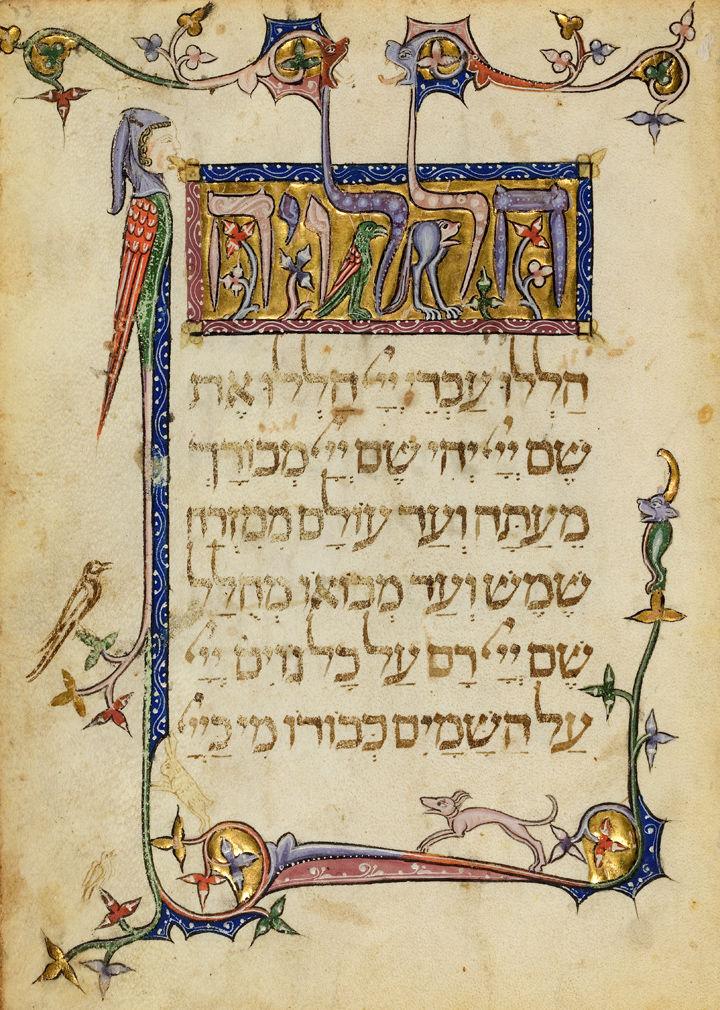 הללויה
הַלְלוּ עַבְדֵי יְיָ הַלְלוּ אֶת
שֵׁם יְיָ יְהִי שֵׁם יְיָ מְבוֹרָךְ
מֵעַתָּה וְעַד עוֹלָם מִמִּזְרַח
שֶׁמֶשׁ וְעַד מְבוֹאוֹ מְהֻלָּל
שֵׁם יְיָ רָם עַל כָּל גּוֹיִם יְיָ
עַל הַשָּׁמַיִם כְּבוֹדוֹ מִי כַּיְיָ